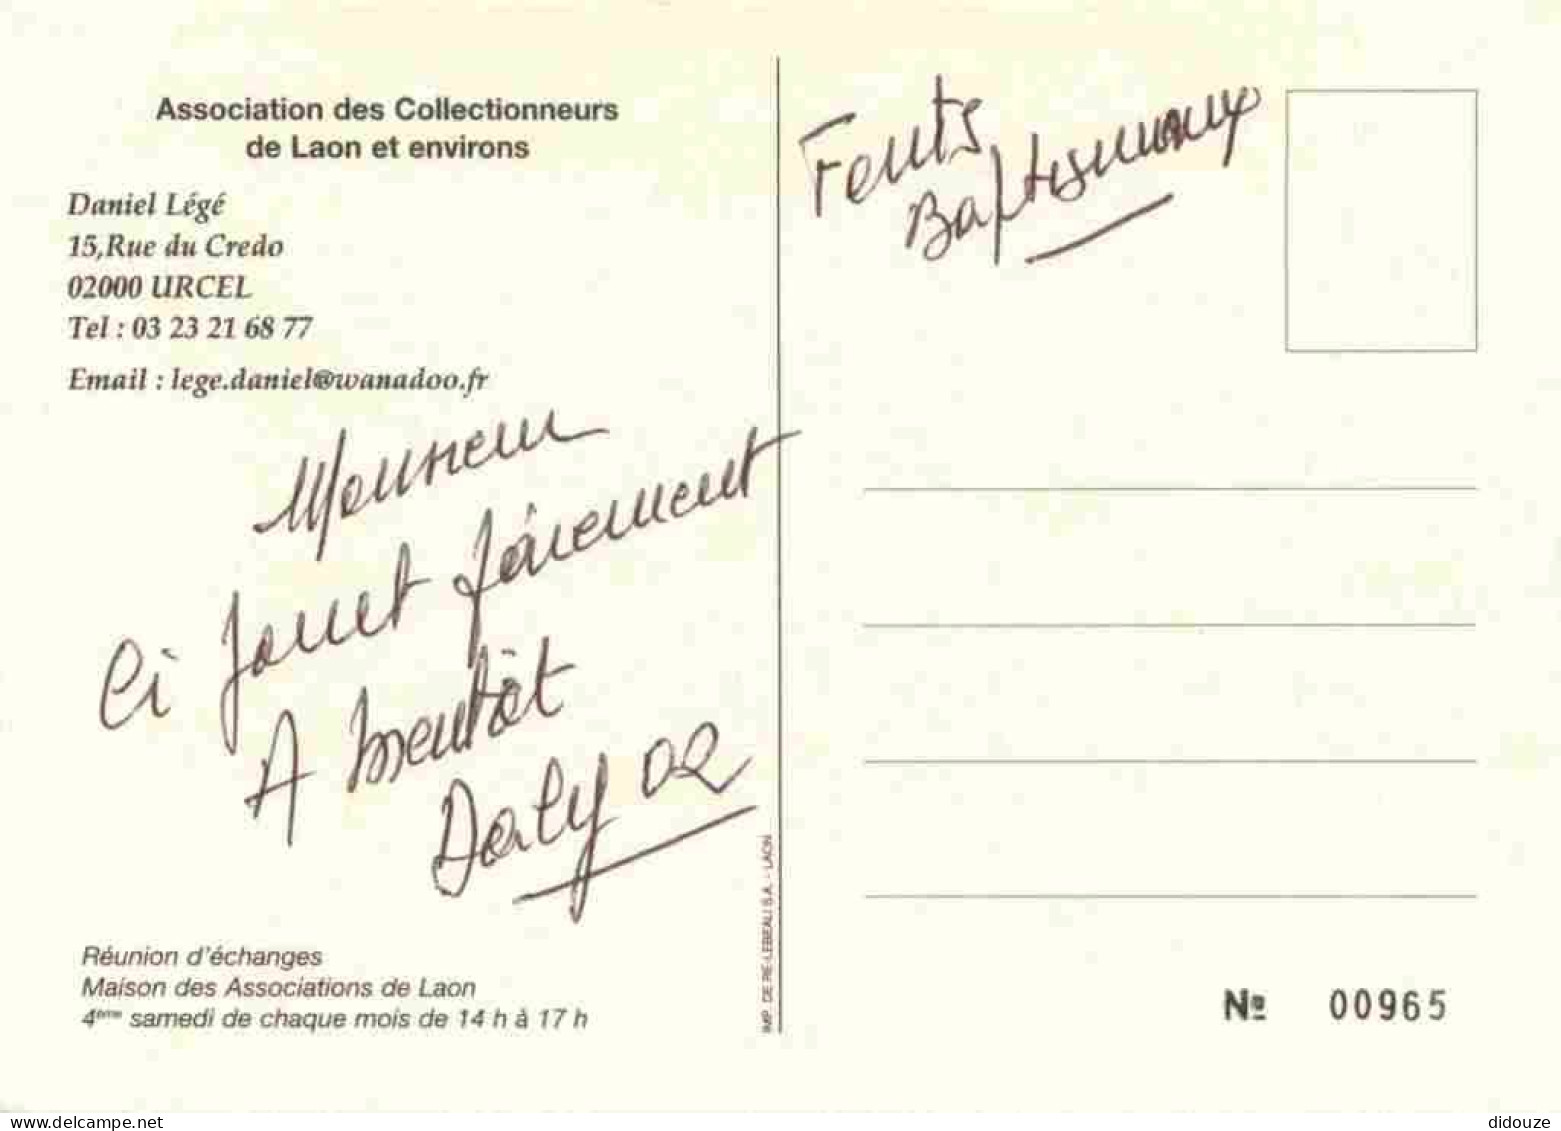 Association des Collectionneurs
de Laon et environs
Daniel Légé
15,Rue du Credo
02000 URCEL
Tel : 03 23 21 68 77
Email : lege.daniel@wanadoo.fr
Monsieur
Ci Jouet
A bientôt
Daly 02
Réunion d'échanges
Maison des Associations de Laon
4ème samedi de chaque mois de 14 h à 17 h
IMP. DE RE-LEBEAU S.A. - LAON
Fonts
Baptismaux
Nº 00965
www.delcampe.net
didouze